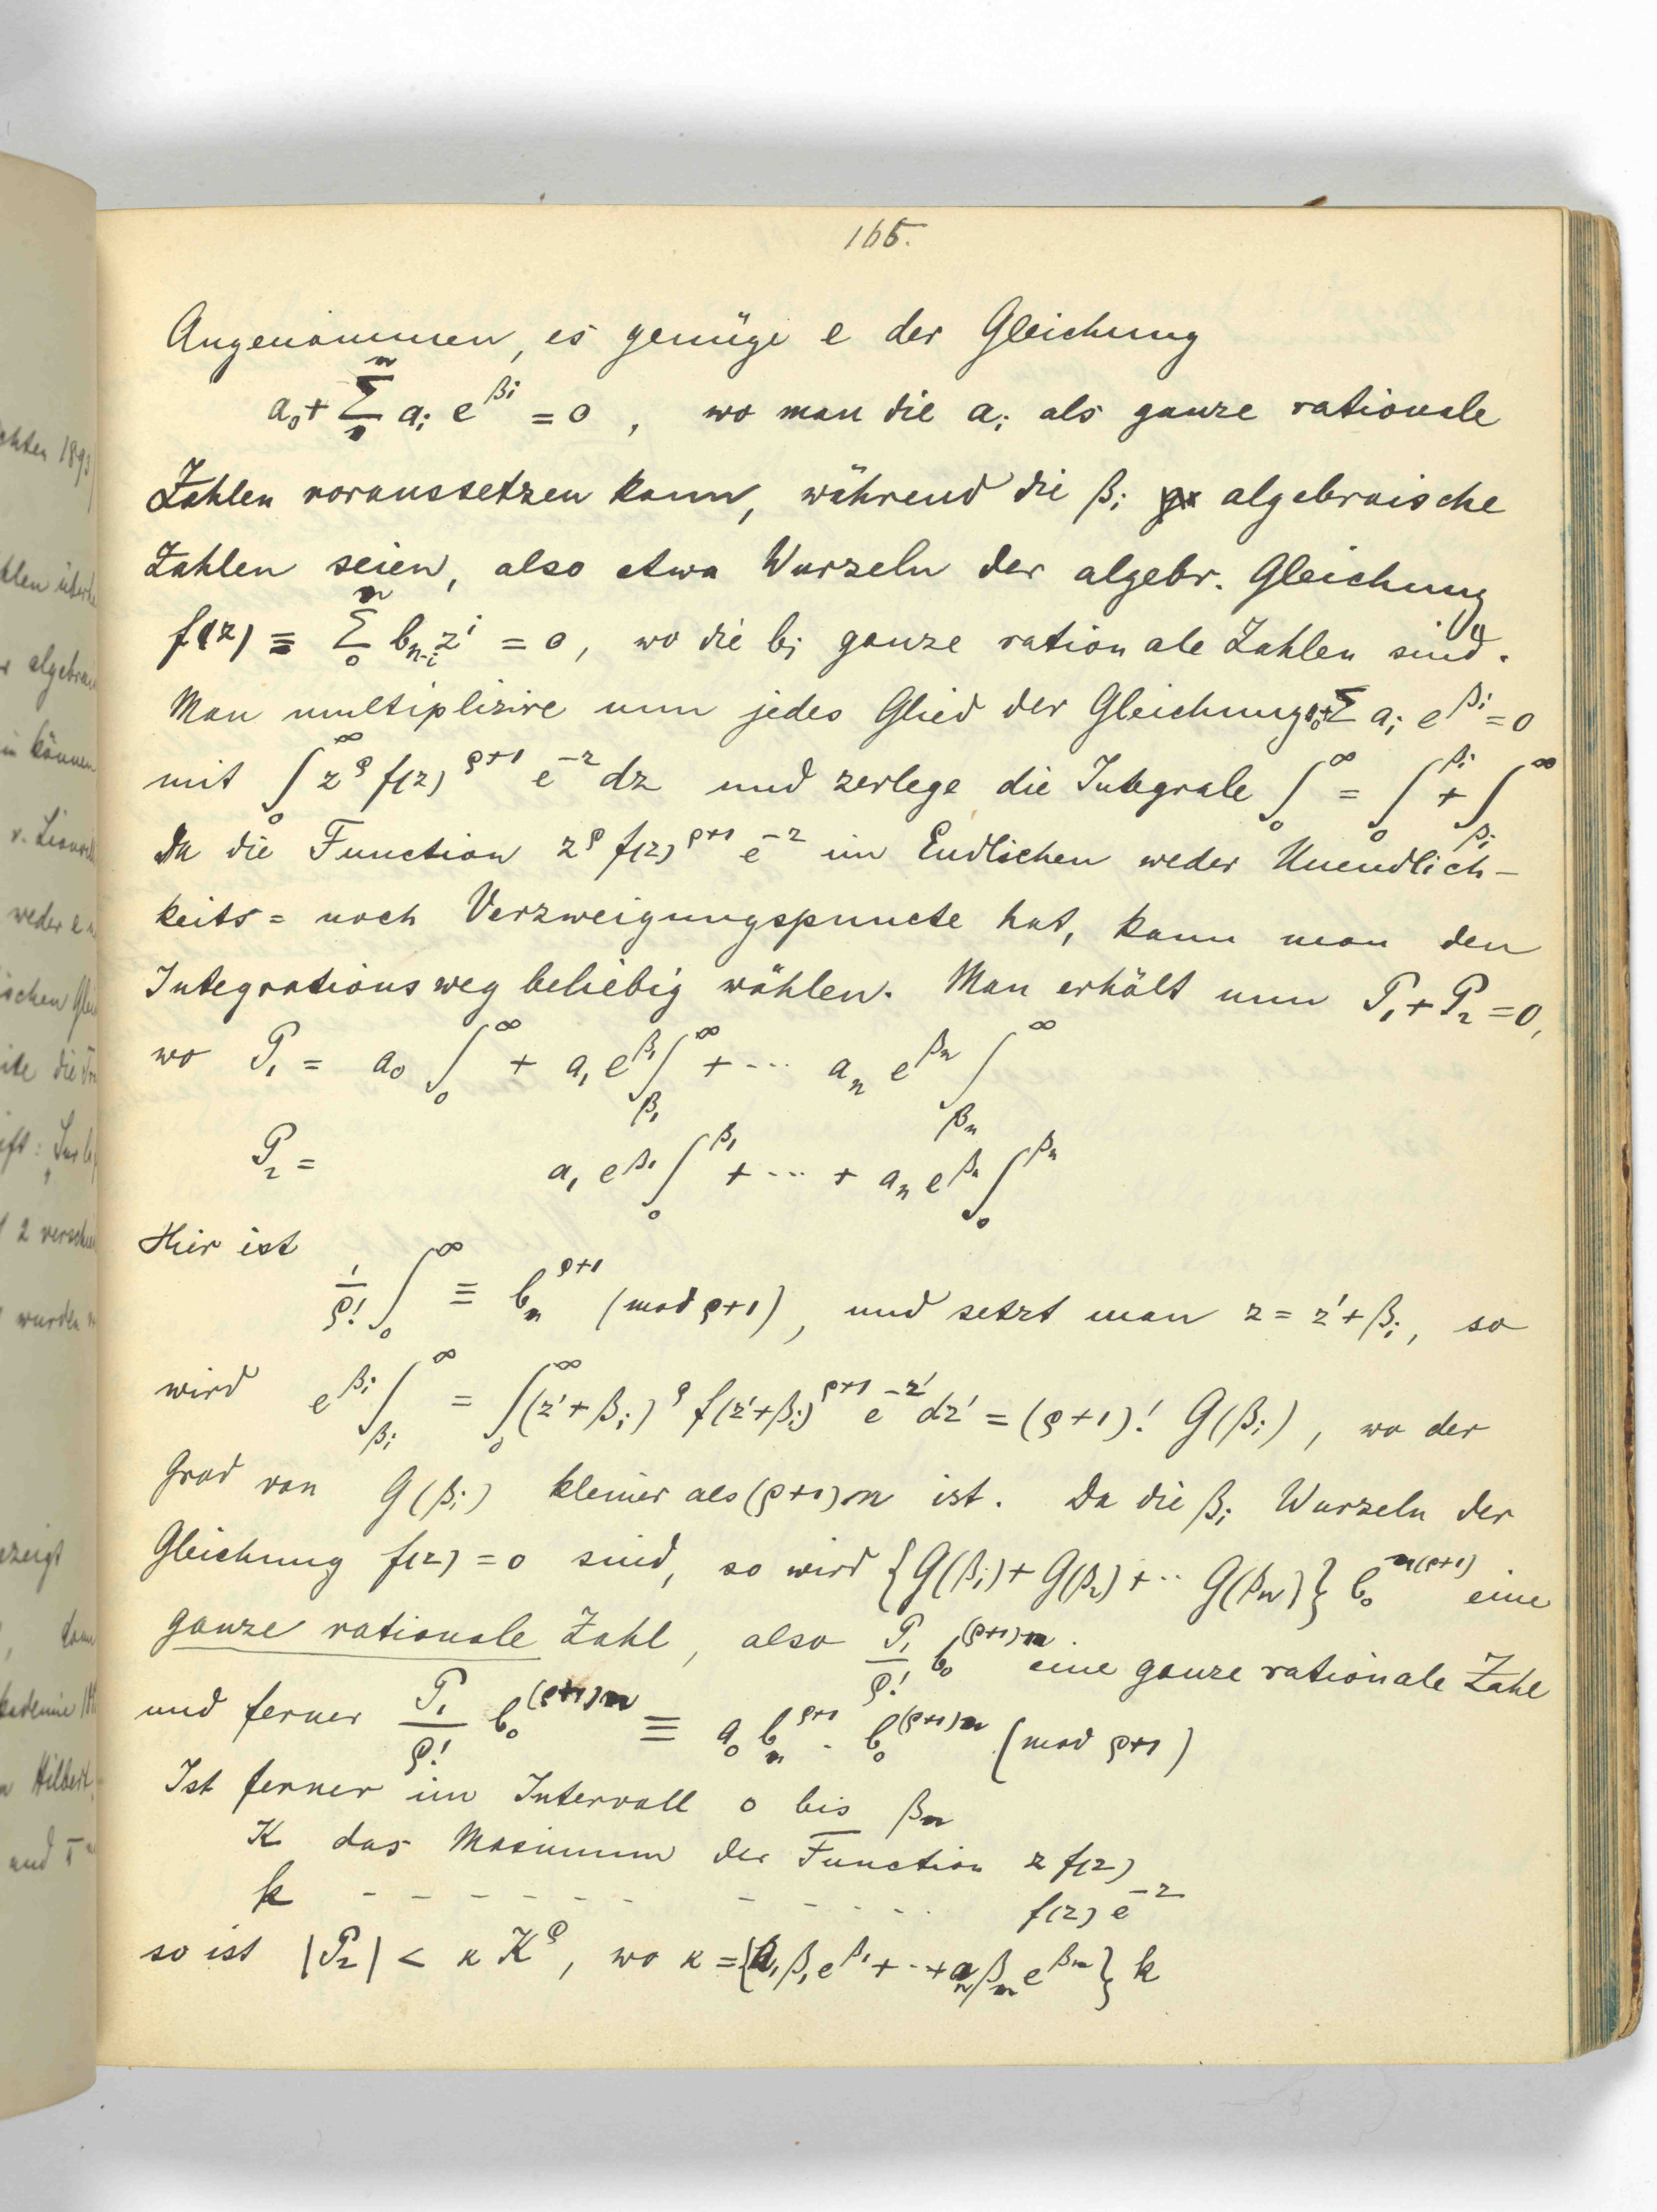 165.
Angenommen, es genüge e der Gleichung
a₀ + Σ aᵢ e^{βᵢ} = 0, wo man die aᵢ als ganze rationale
Zahlen voraussetzen kann, während die βᵢ algebraische
Zahlen seien, also etwa Wurzeln der algebr. Gleichung
f(z) ≡ Σ₀ⁿ b_{n-i} zⁱ = 0, wo die bᵢ ganze rationale Zahlen sind.
Man multiplizire nun jedes Glied der Gleichung a₀+Σ aᵢ e^{βᵢ} = 0
mit ∫₀^∞ z^ρ f(z)^{ρ+1} e^{-z} dz und zerlege die Integrale ∫₀^∞ = ∫₀^{βᵢ} + ∫_{βᵢ}^∞
Da die Function z^ρ f(z)^{ρ+1} e^{-z} im Endlichen weder Unendlich-
keits= noch Verzweigungspuncte hat, kann man den
Integrationsweg beliebig wählen. Man erhält nun P₁ + P₂ = 0,
wo P₁ = a₀ ∫₀^∞ + a₁ e^{β₁} ∫_{β₁}^∞ + ··· aₙ e^{βₙ} ∫_{βₙ}^∞
P₂ = a₁ e^{β₁} ∫₀^{β₁} + ··· + aₙ e^{βₙ} ∫₀^{βₙ}
Hier ist
1/ρ! ∫₀^∞ ≡ bₙ^{ρ+1} (mod ρ+1), und setzt man z = z'+βᵢ, so
wird e^{βᵢ} ∫_{βᵢ}^∞ = ∫₀^∞ (z'+βᵢ)^ρ f(z'+βᵢ)^{ρ+1} e^{-z'} dz' = (ρ+1)! G(βᵢ), wo der
Grad von G(βᵢ) kleiner als (ρ+1)n ist. Da die βᵢ Wurzeln der
Gleichung f(z) = 0 sind, so wird {G(β₁) + G(β₂) + ·· G(βₙ)} b₀^{n(ρ+1)} eine
ganze rationale Zahl, also P₁/ρ! b₀^{(ρ+1)n} eine ganze rationale Zahl
und ferner P₁/ρ! b₀^{(ρ+1)n} ≡ a₀ bₙ^{ρ+1} · b₀^{(ρ+1)n} (mod ρ+1)
Ist ferner im Intervall 0 bis βₙ
K das Maximum der Function z f(z)
k - - - - - - - - - - - - f(z) e^{-z}
so ist |P₂| < κ K^ρ, wo κ = {a₁β₁e^{β₁} + ·· + aₙβₙe^{βₙ}} k